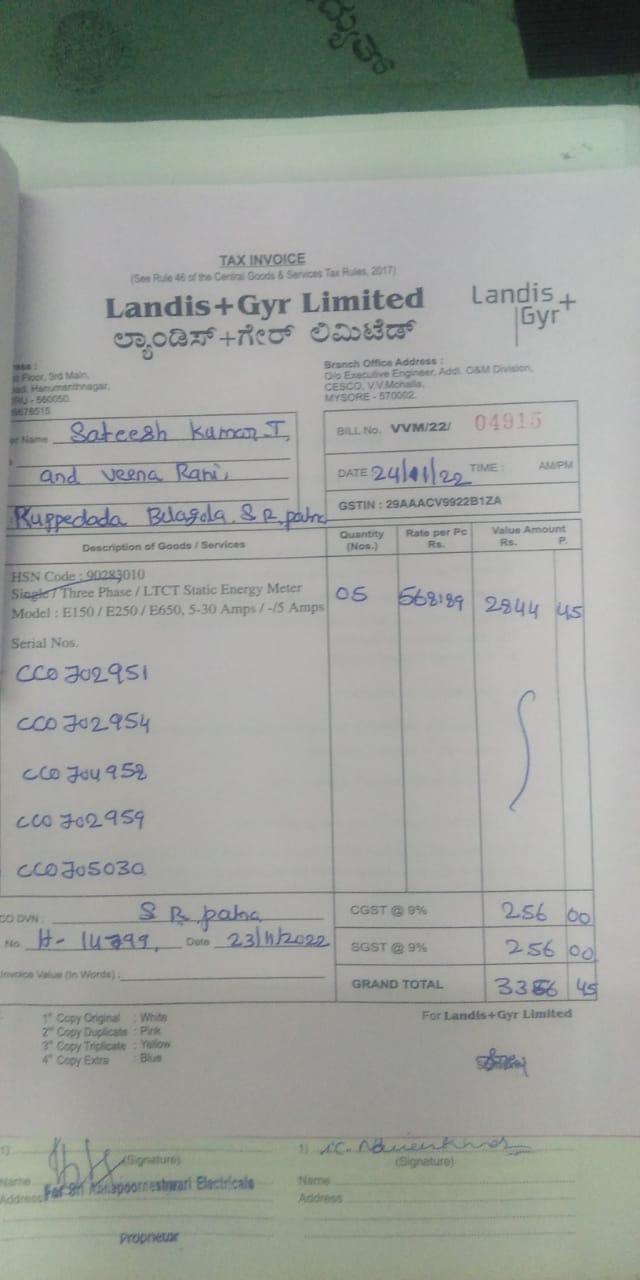 ದ್ಯುತ್
TAX INVOICE
(See Rule 46 of the Central Goods & Services Tax Rules, 2017)
Landis+Gyr Limited
ಲ್ಯಾಂಡಿಸ್+ಗೇರ್ ಲಿಮಿಟೆಡ್
Landis+
Gyr
Floor, 3rd Main,
Hanumanthnagar,
RU - 560050.
5676515
Branch Office Address :
O/o Executive Engineer, Addl. O&M Division,
CESCO, V.V.Mohalla,
MYSORE - 570002.
er Name Sateesh Kumar.T,
and Veena Rani,
Kuppedada Belagola. S R. patna
BILL No. VVM/22/ 04915
DATE 24/11/22 TIME : AM/PM
GSTIN : 29AAACV9922B1ZA
Description of Goods / Services Quantity (Nos.) Rate per Pc Rs. Value Amount Rs. P.
HSN Code : 90283010
Single / Three Phase / LTCT Static Energy Meter
Model : E150 / E250 / E650, 5-30 Amps / -/5 Amps
05 568.89 2844 45
Serial Nos.
CC0702951
CC0702954
CC0704952
CC0702959
CC0705030
CO DVN : S R. patna
No. H- 14799, Date 23/11/2022
Invoice Value (In Words) :
CGST @ 9% 256 00
SGST @ 9% 256 00
GRAND TOTAL 3356 45
1st Copy Original : White
2nd Copy Duplicate : Pink
3rd Copy Triplicate : Yellow
4th Copy Extra : Blue
For Landis+Gyr Limited
1)
(Signature)
Name
Address
For Sri Annapoorneshwari Electricals
Proprietor
1)
(Signature)
Name
Address